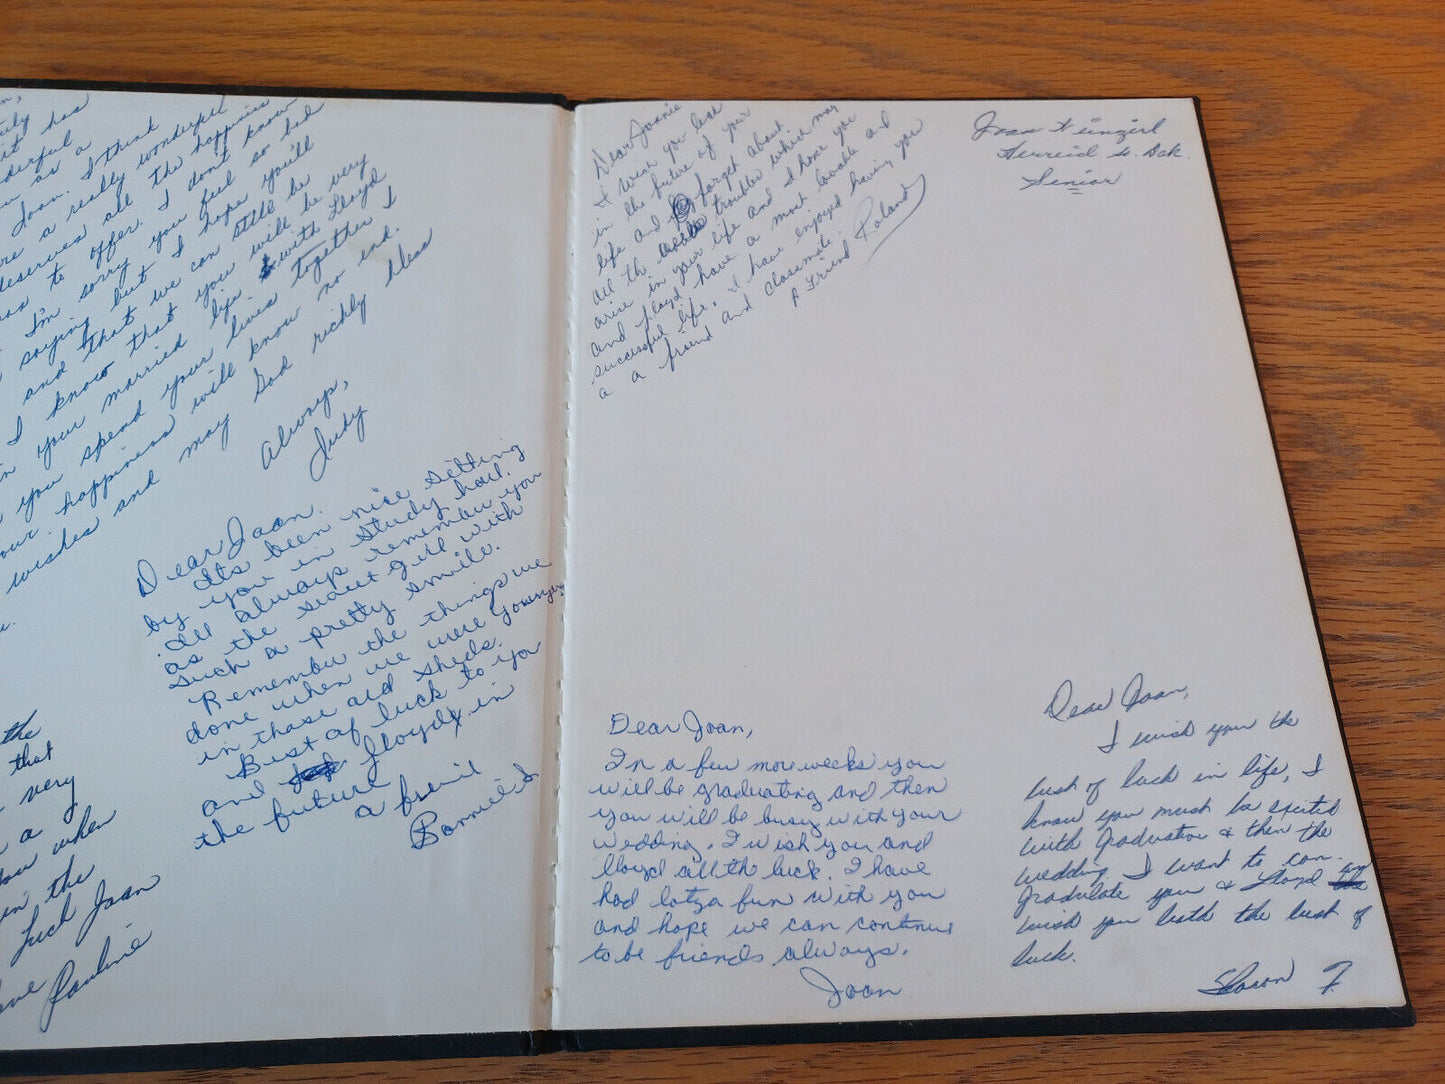 it has
wonderful
as a
Joan. I think
are a really wonderful
deserves all the happiness
has to offer. I don't know
I'm sorry you feel so bad
saying but I hope you'll
and that we can still be
I know that you will be very
in your married life with Lloyd
you spend your lives together I
your happiness will know no end.
wishes and may God richly bless
Always,
Judy
Dear Joan.
Its been nice setting
by you in study hall.
I'll always remember you
as the sweet girl with
such a pretty smile.
Remember the things we
done when we were younger
in those old sheds.
Best of luck to you
and Lloyd in
the future
a friend
Bonnie
the
that
very
a
you when
in the
Luck Joan
Love
Pauline
Dear Joanie
I wish you luck
in the future of your
life and forget about
all the troubles which may
arise in your life and I hope you
and Lloyd have a most lovable and
successful life. I have enjoyed having you
a a friend and classmate.
A Friend Roland
Joan
Herreid So. Dak.
Senior
Dear Joan,
In a few more weeks you
will be graduating and then
you will be busy with your
wedding. I wish you and
lloyd all the luck. I have
had lotza fun with you
and hope we can continue
to be friends always.
Joan
Dear Joan,
I wish you the
best of luck in life, I
know you must be excited
with graduation & then the
wedding. I want to con-
gradulate you & Lloyd and
wish you both the best of
luck.
Sharon F.